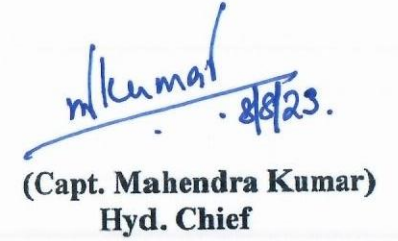 mkumar
8/8/23.
(Capt. Mahendra Kumar)
Hyd. Chief